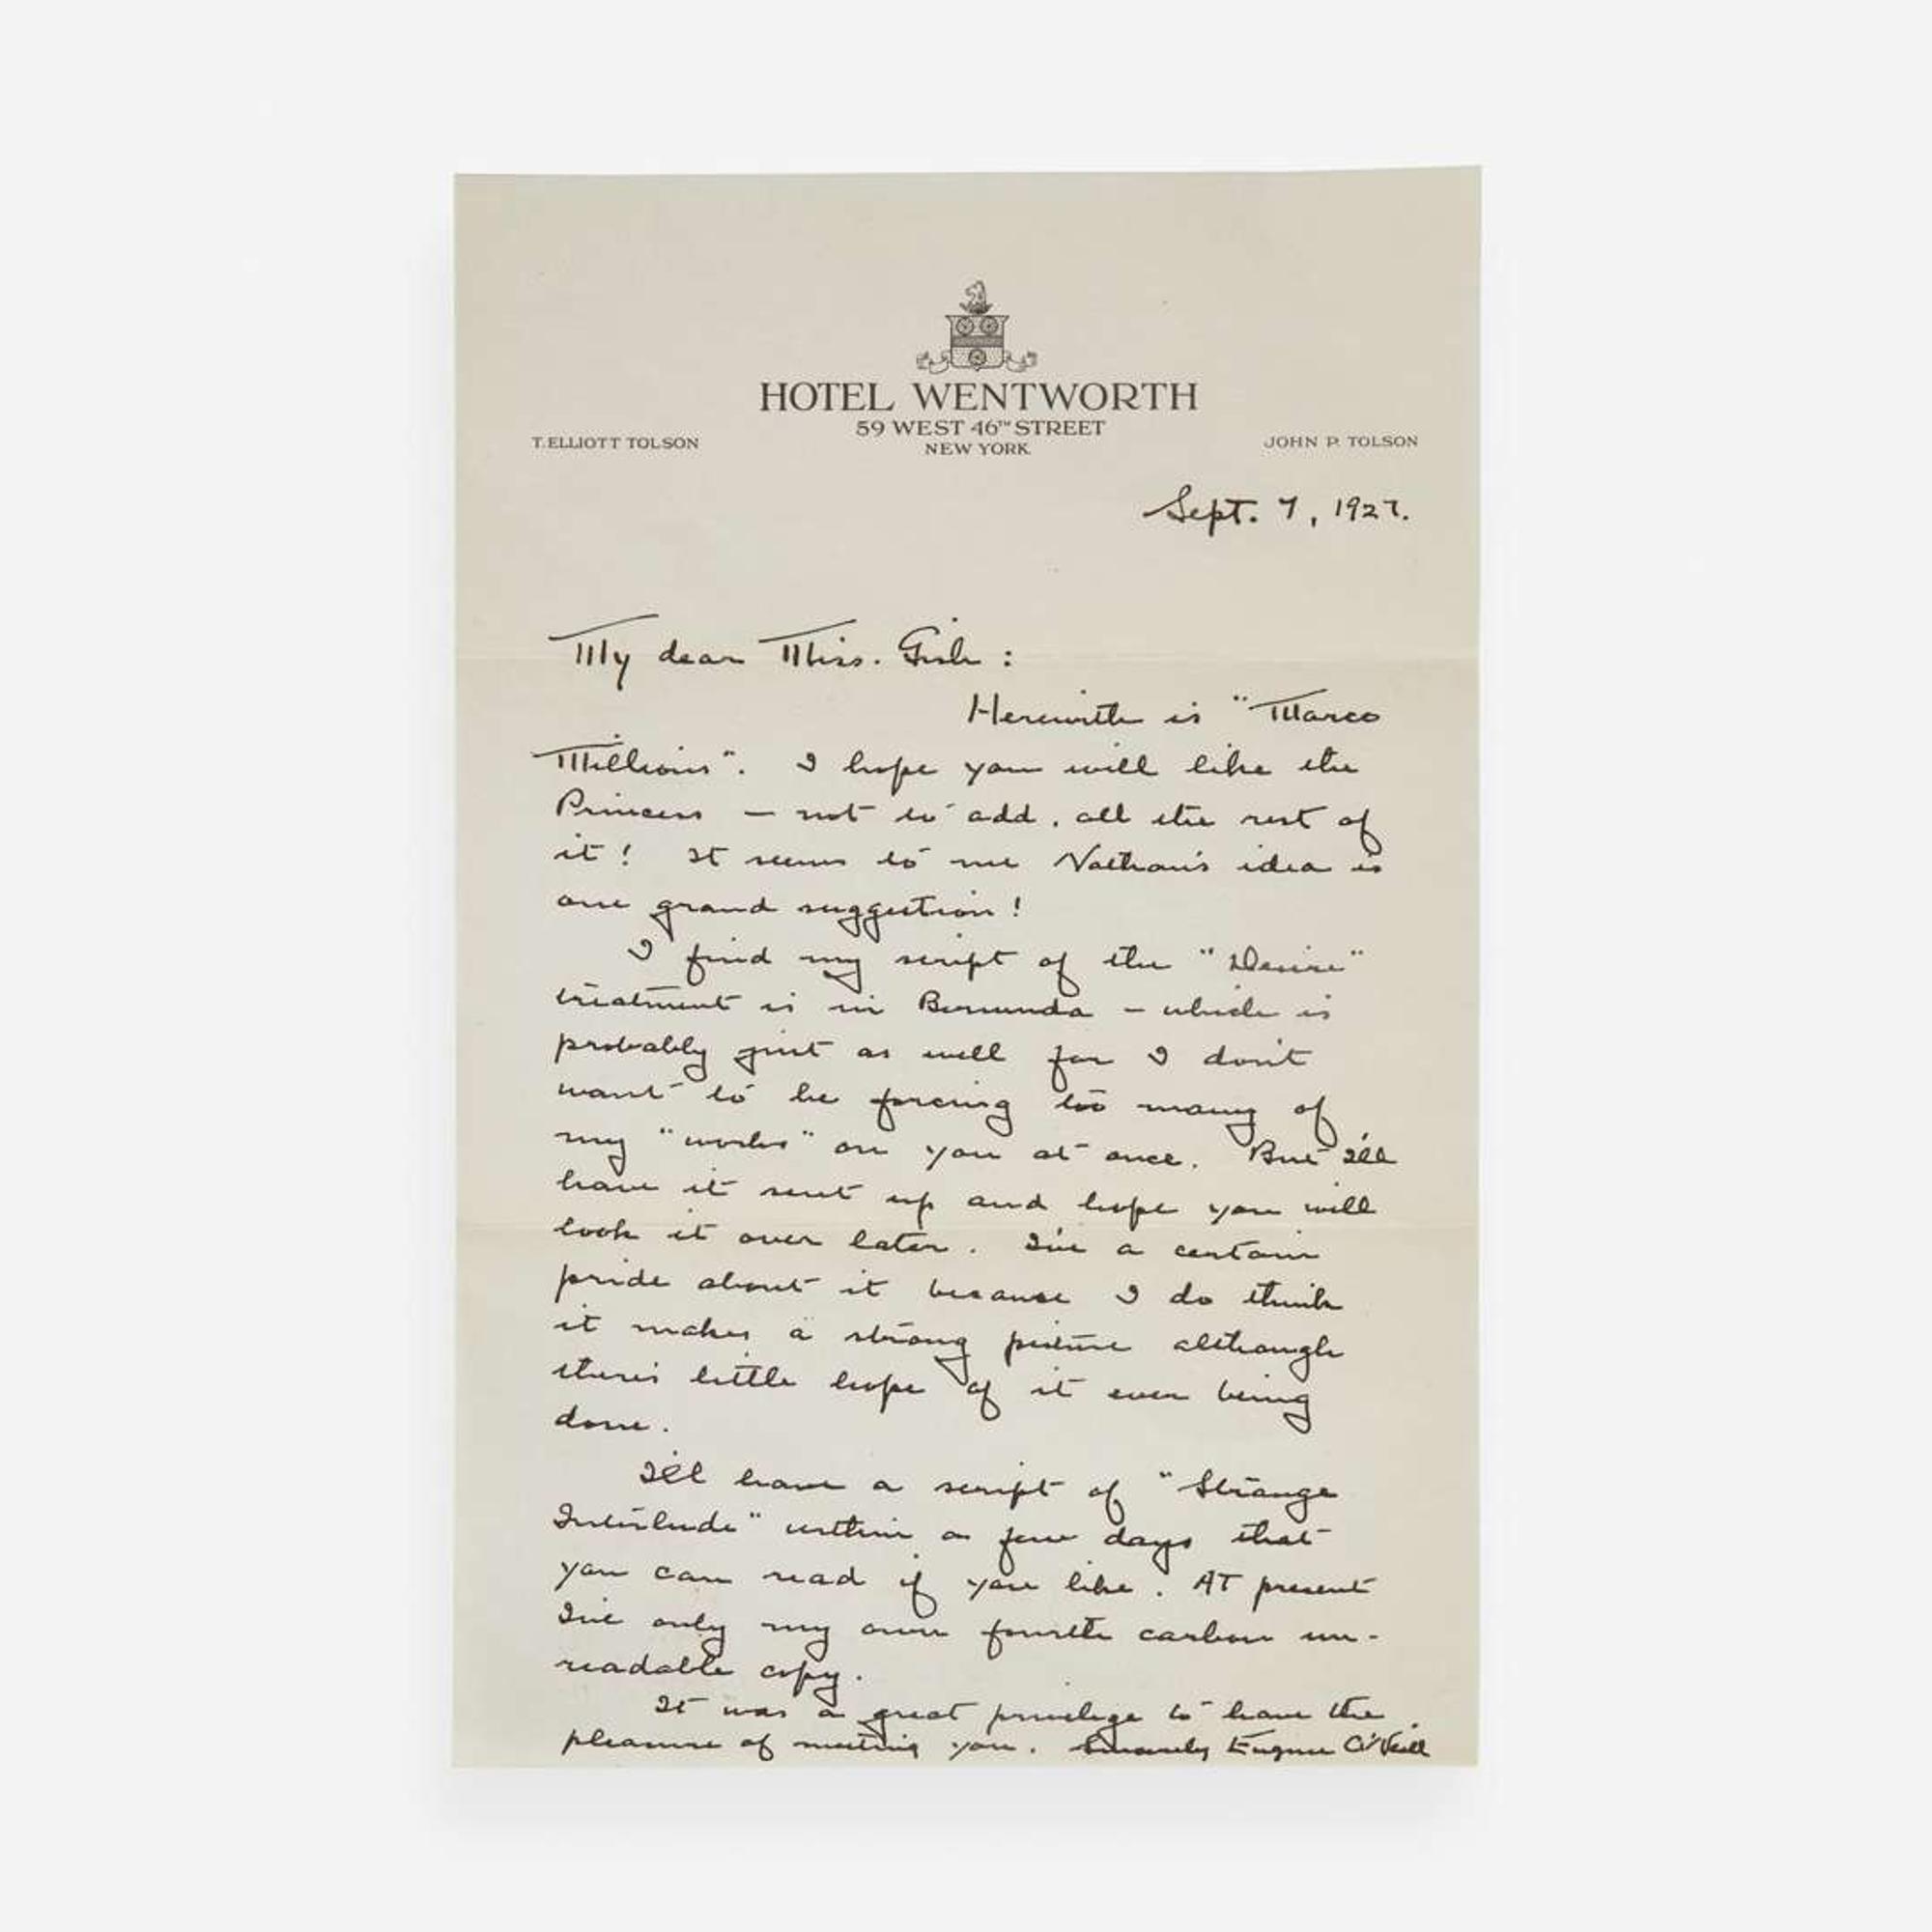 HOTEL WENTWORTH
59 WEST 46TH STREET
NEW YORK
T. ELLIOTT TOLSON
JOHN P. TOLSON
Sept. 7, 1927.
My dear Miss. Gish:
Herewith is "Marco
Millions". I hope you will like the
Princess — not to add, all the rest of
it! It seems to me Nathan's idea is
one grand suggestion!
I find my script of the "Desire"
treatment is in Bermuda - which is
probably just as well for I don't
want to be forcing too many of
my "works" on you at once. But I'll
have it sent up and hope you will
look it over later. I've a certain
pride about it because I do think
it makes a strong picture although
there's little hope of it ever being
done.
I'll have a script of "Strange
Interlude" within a few days that
you can read if you like. At present
I've only my own fourth carbon un-
readable copy.
It was a great privilege to have the
pleasure of meeting you. Sincerely Eugene O'Neill